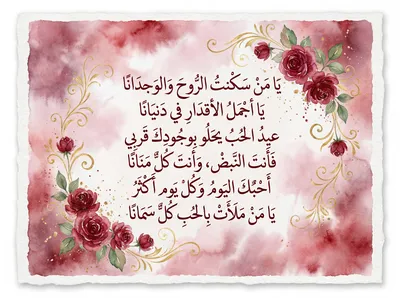 يَا مَنْ سَكَنْتَ الرُّوحَ وَالوَجدَانَا
يَا أَجْمَلُ الأَقدَارِ في دَنيَانَا
عيدُ الحُبُ يحلُو بوجُودِكَ قَربي
فَأَنتَ النَّبضُ، وَأَنتَ كُلُّ مَنَانَا
أَحبُكَ اليَومُ وَكُلْ يَومِ أَكْثَرُ
يَا مَنْ مَلَأَتْ بِالحُبِ كُلَّ سَمَانَا